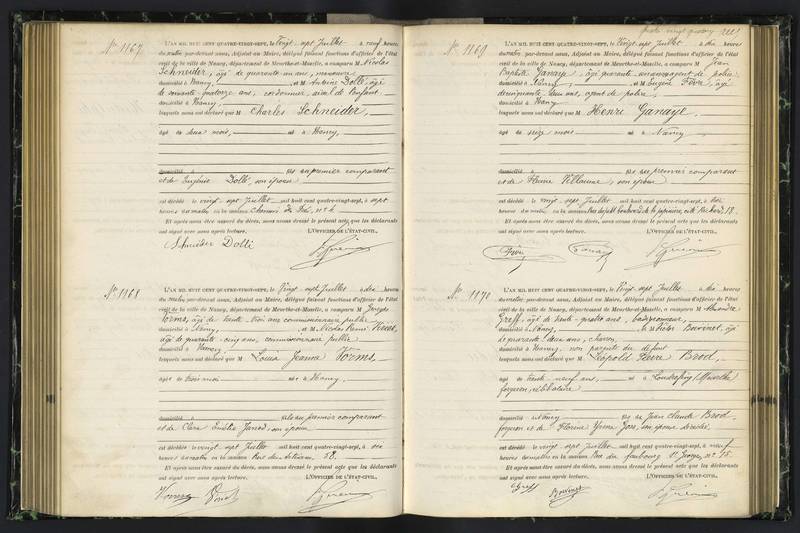 N° 1167
L'AN MIL HUIT CENT QUATRE-VINGT-SEPT, le Vingt sept Juillet à neuf heures
du matin par-devant nous, Adjoint au Maire, délégué faisant fonctions d'officier de l'état
civil de la ville de Nancy, département de Meurthe-et-Moselle, a comparu M. Nicolas
Schneider, âgé de quarante un ans, manœuvre
domicilié à Nancy, et M Antoine Dollé, âgé
de soixante quatorze ans, cordonnier, aïeul de l'enfant
domicilié à Nancy
lesquels nous ont déclaré que M Charles Schneider,
âgé de deux mois, né à Nancy,
domicilié à fils au premier comparant
et de Eugénie Dollé, son épouse
est décédé le vingt sept Juillet mil huit cent quatre-vingt-sept, à sept
heures du matin en la maison
Et après nous être assuré du décès, nous avons dressé le présent acte que les déclarants
ont signé avec nous après lecture. L'OFFICIER DE L'ÉTAT-CIVIL.
Schneider Dollé
N° 1168
L'AN MIL HUIT CENT QUATRE-VINGT-SEPT, le Vingt sept Juillet à dix heures
du matin par-devant nous, Adjoint au Maire, délégué faisant fonctions d'officier de l'état
civil de la ville de Nancy, département de Meurthe-et-Moselle, a comparu M
Vorms, âgé de trente trois ans commissionnaire public
domicilié à Nancy, et M Nicolas
âgé de quarante cinq ans, commissionnaire public
domicilié à Nancy
lesquels nous ont déclaré que M Louise Jeanne Vorms
âgé de trois mois née à Nancy,
domicilié à au premier comparant
et de Clara Janod, son épouse
est décédé le vingt sept Juillet mil huit cent quatre-vingt-sept, à six
heures du matin en la maison Rue des 58.
Et après nous être assuré du décès, nous avons dressé le présent acte que les déclarants
ont signé avec nous après lecture. L'OFFICIER DE L'ÉTAT-CIVIL.
Vorms
N° 1169
L'AN MIL HUIT CENT QUATRE-VINGT-SEPT, le Vingt sept Juillet à dix heures
du matin par-devant nous, Adjoint au Maire, délégué faisant fonctions d'officier de l'état
civil de la ville de Nancy, département de Meurthe-et-Moselle, a comparu M Jean
Baptiste Ganaye, âgé quarante un ans, agent de police
domicilié à Nancy, et M Eugène Fèvre, âgé
de cinquante deux ans, agent de police,
domicilié à Nancy
lesquels nous ont déclaré que M Henri Ganaye,
âgé de seize mois né à Nancy
domicilié à fils au premier comparant
et de son épouse
est décédé le vingt sept Juillet mil huit cent quatre-vingt-sept, à
heures du matin en la maison 18.
Et après nous être assuré du décès, nous avons dressé le présent acte que les déclarants
ont signé avec nous après lecture. L'OFFICIER DE L'ÉTAT-CIVIL.
Fèvre Ganaye
N° 1170
L'AN MIL HUIT CENT QUATRE-VINGT-SEPT, le Vingt sept Juillet à dix heures
du matin par-devant nous, Adjoint au Maire, délégué faisant fonctions d'officier de l'état
civil de la ville de Nancy, département de Meurthe-et-Moselle, a comparu M Alexandre
Greff, âgé de trente quatre ans, badigeonneur,
domicilié à Nancy, et M Bovinet, âgé
de quarante deux ans, charron,
domicilié à Nancy, non parents du défunt
lesquels nous ont déclaré que M Léopold Pierre Brod,
âgé de trente neuf ans, né à (Moselle)
forgeron, célibataire
domicilié à Nancy fils de Jean Claude Brod,
forgeron et de son épouse
est décédé le vingt sept Juillet mil huit cent quatre-vingt-sept, à neuf
heures du matin en la maison Rue du faubourg St Georges, n° 15.
Et après nous être assuré du décès, nous avons dressé le présent acte que les déclarants
ont signé avec nous après lecture. L'OFFICIER DE L'ÉTAT-CIVIL.
Greff Bovinet